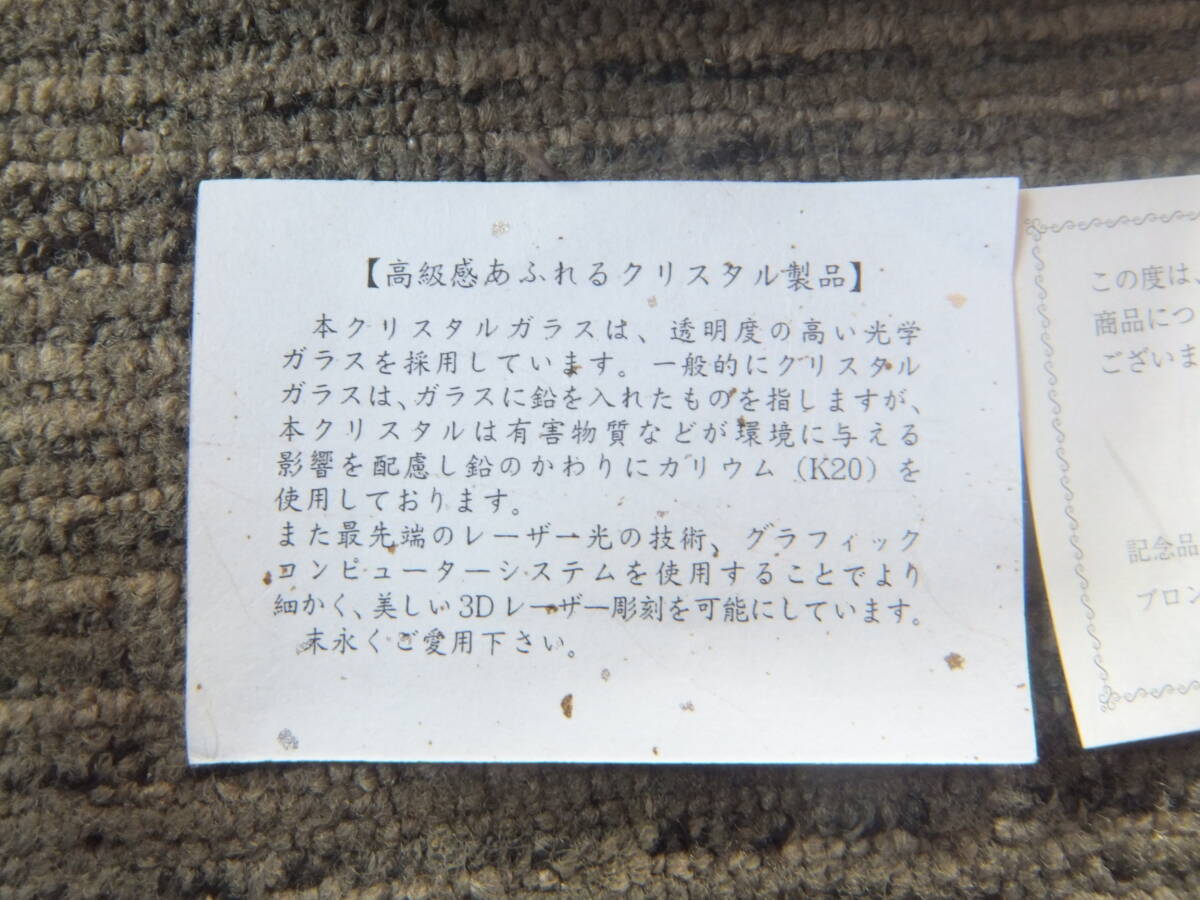 【高級感あふれるクリスタル製品】
本クリスタルガラスは、透明度の高い光学
ガラスを採用しています。一般的にクリスタル
ガラスは、ガラスに鉛を入れたものを指しますが、
本クリスタルは有害物質などが環境に与える
影響を配慮し鉛のかわりにカリウム(K20)を
使用しております。
また最先端のレーザー光の技術、グラフィック
コンピューターシステムを使用することでより
細かく、美しい3Dレーザー彫刻を可能にしています。
末永くご愛用下さい。
この度は、
商品につ
ございま
記念品
ブロン